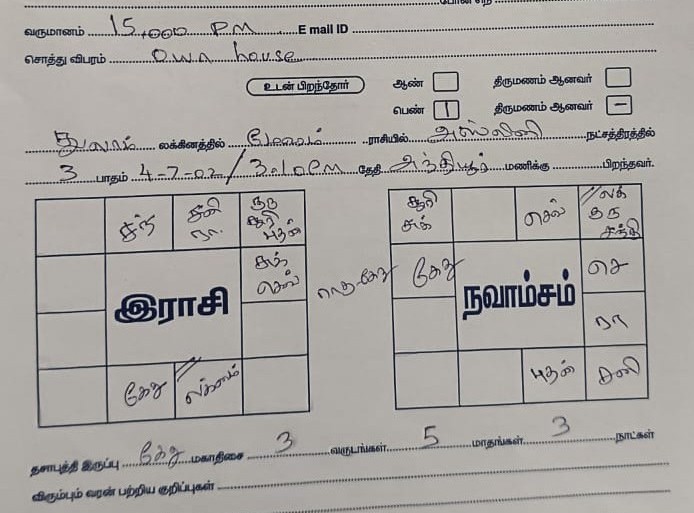 போன் எண்
வருமானம் 15,000 PM E mail ID
சொத்து விபரம் Own house
உடன் பிறந்தோர் ஆண் திருமணம் ஆனவர்
பெண் 1 திருமணம் ஆனவர் -
துலாம் லக்கினத்தில் மேஷம் ராசியில் அஸ்வினி நட்சத்திரத்தில்
3 பாதம் 4-7-02/3.10PM தேதி அந்தியூர் மணிக்கு பிறந்தவர்.
சந் சனி ரா. குரு சூரி புதன்
சுக் செவ்
இராசி
கேது லக்னம்
சூரி சுக் செவ் லக் குரு சந்தி
கேது செ
நவாம்சம்
ரா
புதன் சனி
தசாபுத்தி இருப்பு கேது மகாதிசை 3 வருடங்கள் 5 மாதங்கள் 3 நாட்கள்
விரும்பும் வரன் பற்றிய குறிப்புகள்